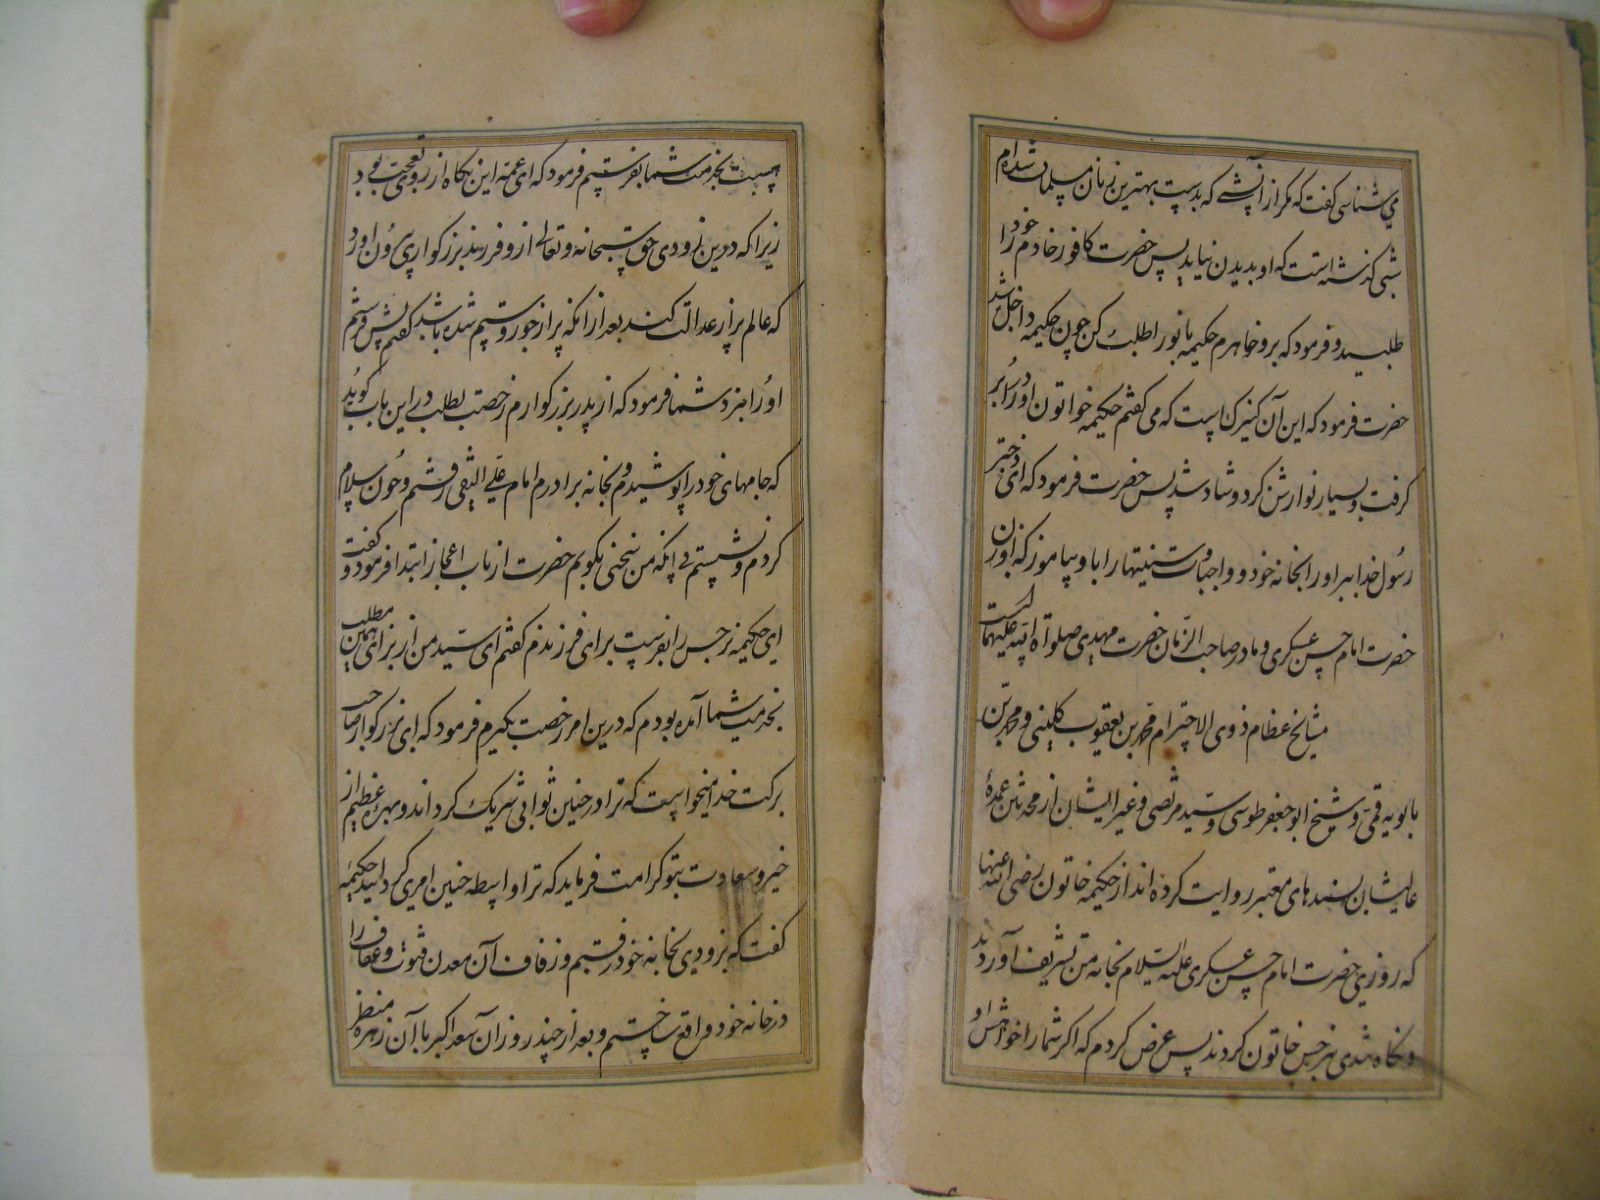 می شناسی گفت که مکر از آن شبی که بدست بهترین زنان مسلمان شده ام
شبی نکذشته است که او بدیدن نیاید پس حضرت کافور خادم خود را
طلبید و فرمود که برو خواهرم حکیمه بانو را طلب کن چون حکیمه داخل شد
حضرت فرمود که این آن کنیزک است که می کفتم حکیمه خواتون او را در بر
کرفت و بسیار نوازش کرد و شاد شد پس حضرت فرمود که ای دختر
رسول خدا ببر او را بخانه خود و واجبات و سنیتها را با و بیاموز که او زن
حضرت امام حسن عسکری و مادر صاحب الزمان حضرت مهدی صلواة الله علیهما است
مشایخ عظام ذوی الاحترام محمد بن یعقوب کلینی و محمد بن
بابویه قمی و شیخ ابو جعفر طوسی و سید مرتضی و غیر ایشان از محدثین عمدهٔ
عالیشان بسندهای معتبر روایت کرده اند از حکیمه خاتون رضی الله عنها
که روزی حضرت امام حسن عسکری علیه السلام بخانه من تشریف آوردند
و نکاه تندی بنرجس خاتون کردند پس عرض کردم که اکر شما را خواهش او
هست بخدمت شما بفرستیم فرمود که ای عمه این نکاه از روی تعجب بود
زیرا که درین زودی حق سبحانه و تعالی از و فرزند بزرکواری بیرون اورد
که عالم پر از عدالت کند بعد از انکه پر از جور و ستم شده باشد کفتم پس بفرستم
او را بنزد شما فرمود که از پدر بزرکوارم رخصت بطلب در این باب کوید
که جامهای خود را پوشیدم و بخانه برادرم امام علی النقی رفتم و چون سلام
کردم و نشستم بی انکه من سخنی بکویم حضرت از باب اعجاز ابتدا فرمود و کفت
ای حکیمه نرجس را بفرست برای فرزندم کفتم ای سید من از برای همین مطلب
بخدمت شما آمده بودم که درین امر رخصت بکیرم فرمود که ای بزرکوار صاحب
برکت خدا میخواست که ترا در چنین ثوابی شریک کرداند و بهره عظیم از
خیر و سعادت بتو کرامت فرماید که ترا واسطه چنین امری کردانید حکیمه
کفت که بزودی بخانه خود رفتم و زفاف آن معدن فتوت و عفاف را
در خانه خود واقع ساختم و بعد از چند روز آن سعد اکبر با آن زهره منظر